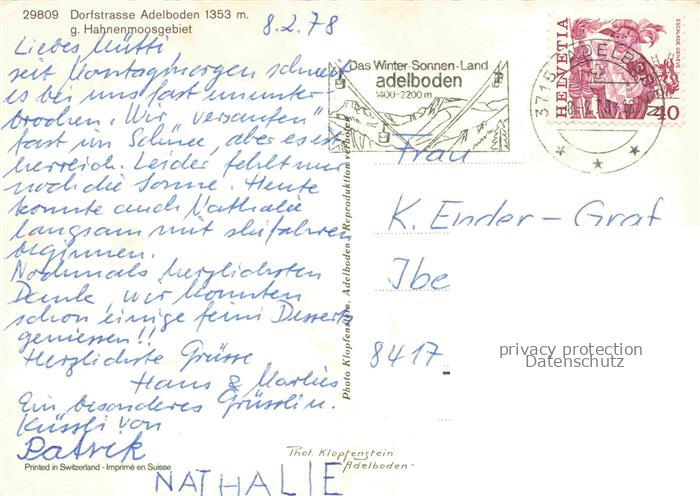 29809 Dorfstrasse Adelboden 1353 m.
g. Hahnenmoosgebiet
8.2.78
Liebes Mutti,
seit Montagmorgen schneit
es bei uns fast ununter-
brochen. Wir "versaufen"
fast im Schnee, aber es ist
herrlich. Leider fehlt nur
noch die Sonne. Heute
konnte auch Nathalie
langsam mit skifahren
beginnen.
Nochmals herzlichsten
Dank, wir konnten
schon einige feine Desserts
geniessen!!
Herzlichste Grüsse
Hans & Marlies
Ein besonderes Grüssli u.
Küssli von
Patrik
NATHALIE
Printed in Switzerland - Imprimé en Suisse
Photo Klopfenstein, Adelboden - Reproduktion verboten
Das Winter-Sonnen-Land
adelboden
1400-2200 m
3715 ADELBODEN
HELVETIA
ESCALADE GENÈVE
40
Frau
K. Ender-Graf
Ibe
8417
privacy protection
Datenschutz
Phot. Klopfenstein
Adelboden